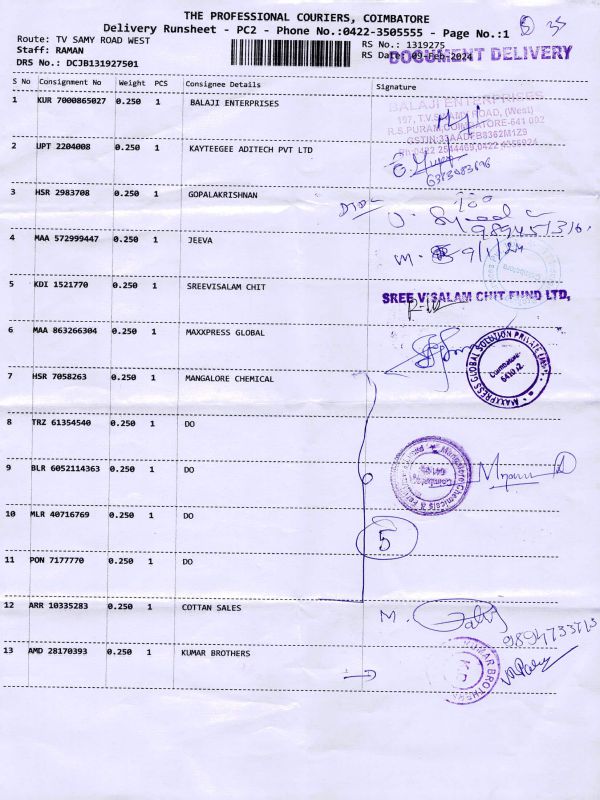 THE PROFESSIONAL COURIERS, COIMBATORE
Delivery Runsheet - PC2 - Phone No.:0422-3505555 - Page No.:1
5 35
Route: TV SAMY ROAD WEST
RS No.: 1319275
Staff: RAMAN
RS Date: 09-Feb-2024
DOCUMENT DELIVERY
DRS No.: DCJB131927501
S No Consignment No Weight PCS Consignee Details Signature
1 KUR 7000865027 0.250 1 BALAJI ENTERPRISES
BALAJI ENTERPRISES
197, T.V.SAMY ROAD, (West)
R.S.PURAM, COIMBATORE-641 002
2 UPT 2204008 0.250 1 KAYTEEGEE ADITECH PVT LTD
3 HSR 2983708 0.250 1 GOPALAKRISHNAN
4 MAA 572999447 0.250 1 JEEVA
5 KDI 1521770 0.250 1 SREEVISALAM CHIT
SREE VISALAM CHIT FUND LTD,
6 MAA 863266304 0.250 1 MAXXPRESS GLOBAL
MAXXPRESS GLOBAL SOLUTION PRIVATE LIMITED
7 HSR 7058263 0.250 1 MANGALORE CHEMICAL
8 TRZ 61354540 0.250 1 DO
9 BLR 6052114363 0.250 1 DO
10 MLR 40716769 0.250 1 DO
5
11 PON 7177770 0.250 1 DO
12 ARR 10335283 0.250 1 COTTAN SALES
M.
13 AMD 28170393 0.250 1 KUMAR BROTHERS
KUMAR BROTHERS